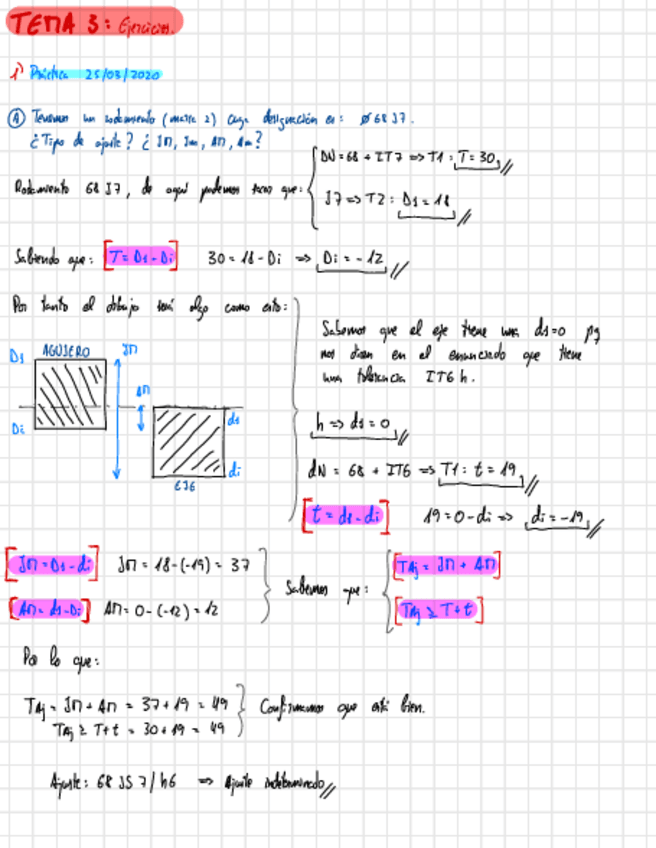 TEMA 3: Ejercicios.
1) Práctica 25/03/2020
A Tenemos un rodamiento (matriz 2) cuya designación es: ø68 J7.
¿Tipo de ajuste? ¿JM, Jm, AM, Am?
Rodamiento 68 J7, de aquí podemos sacar que:
DN = 68 + IT7 => T1: T = 30
J7 => T2: Ds = 18
Sabiendo que: [T = Ds - Di] 30 = 18 - Di => Di = -12
Por tanto el dibujo será algo como esto:
Ds AGUJERO JM
AM
Di
ds
di
EJE
Sabemos que el eje tiene una ds=0 pq
nos dicen en el enunciado que tiene
una tolerancia IT6 h.
h => ds = 0
dN = 68 + IT6 => T1: t = 19
[t = ds - di] 19 = 0 - di => di = -19
[JM = Ds - di] JM = 18 - (-19) = 37
[AM = ds - Di] AM = 0 - (-12) = 12
Sabemos que:
[TAj = JM + AM]
[TAj ≥ T + t]
Por lo que:
TAj = JM + AM = 37 + 19 = 49
TAj ≥ T + t = 30 + 19 = 49
Confirmamos que está bien.
Ajuste: 68 JS 7/h6 => Ajuste indeterminado